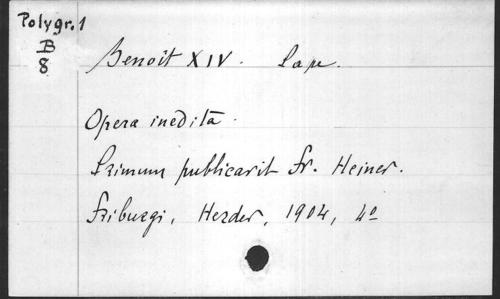 Polygr. 1
B
8
Benoit XIV. Pape.
Opera inedita.
Primum publicavit Fr. Heiner.
Friburgi, Herder, 1904, 4º